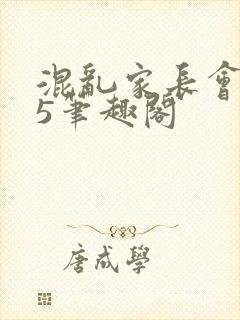 混亂家長會
5筆趣閣
唐咸學